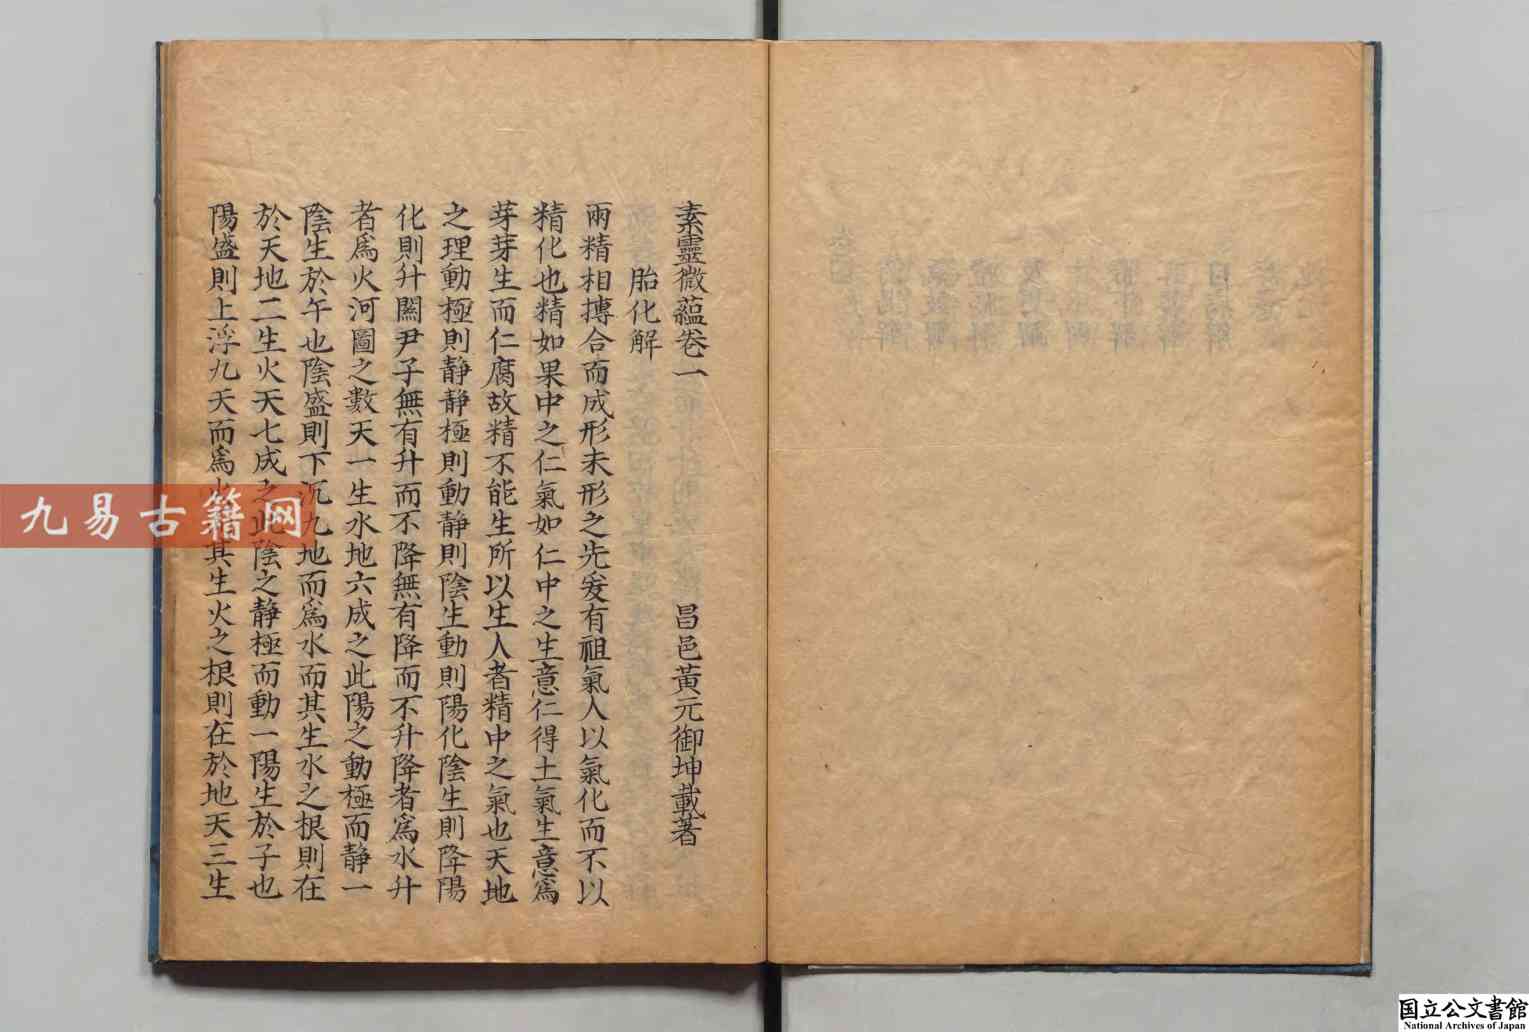 素靈微蘊卷一
昌邑黃元御坤載著
胎化解
兩精相摶合而成形未形之先爰有祖氣人以氣化而不以
精化也精如果中之仁氣如仁中之生意仁得土氣生意為
芽芽生而仁腐故精不能生所以生人者精中之氣也天地
之理動極則静静極則動静則陰生動則陽化陰生則降陽
化則升關尹子無有升而不降無有降而不升降者為水升
者為火河圖之數天一生水地六成之此陽之動極而静一
陰生於午也陰盛則下沉九地而為水而其生水之根則在
於天地二生火天七成之此陰之静極而動一陽生於子也
陽盛則上浮九天而為火其生火之根則在於地天三生
九易古籍网
国立公文書館
National Archives of Japan